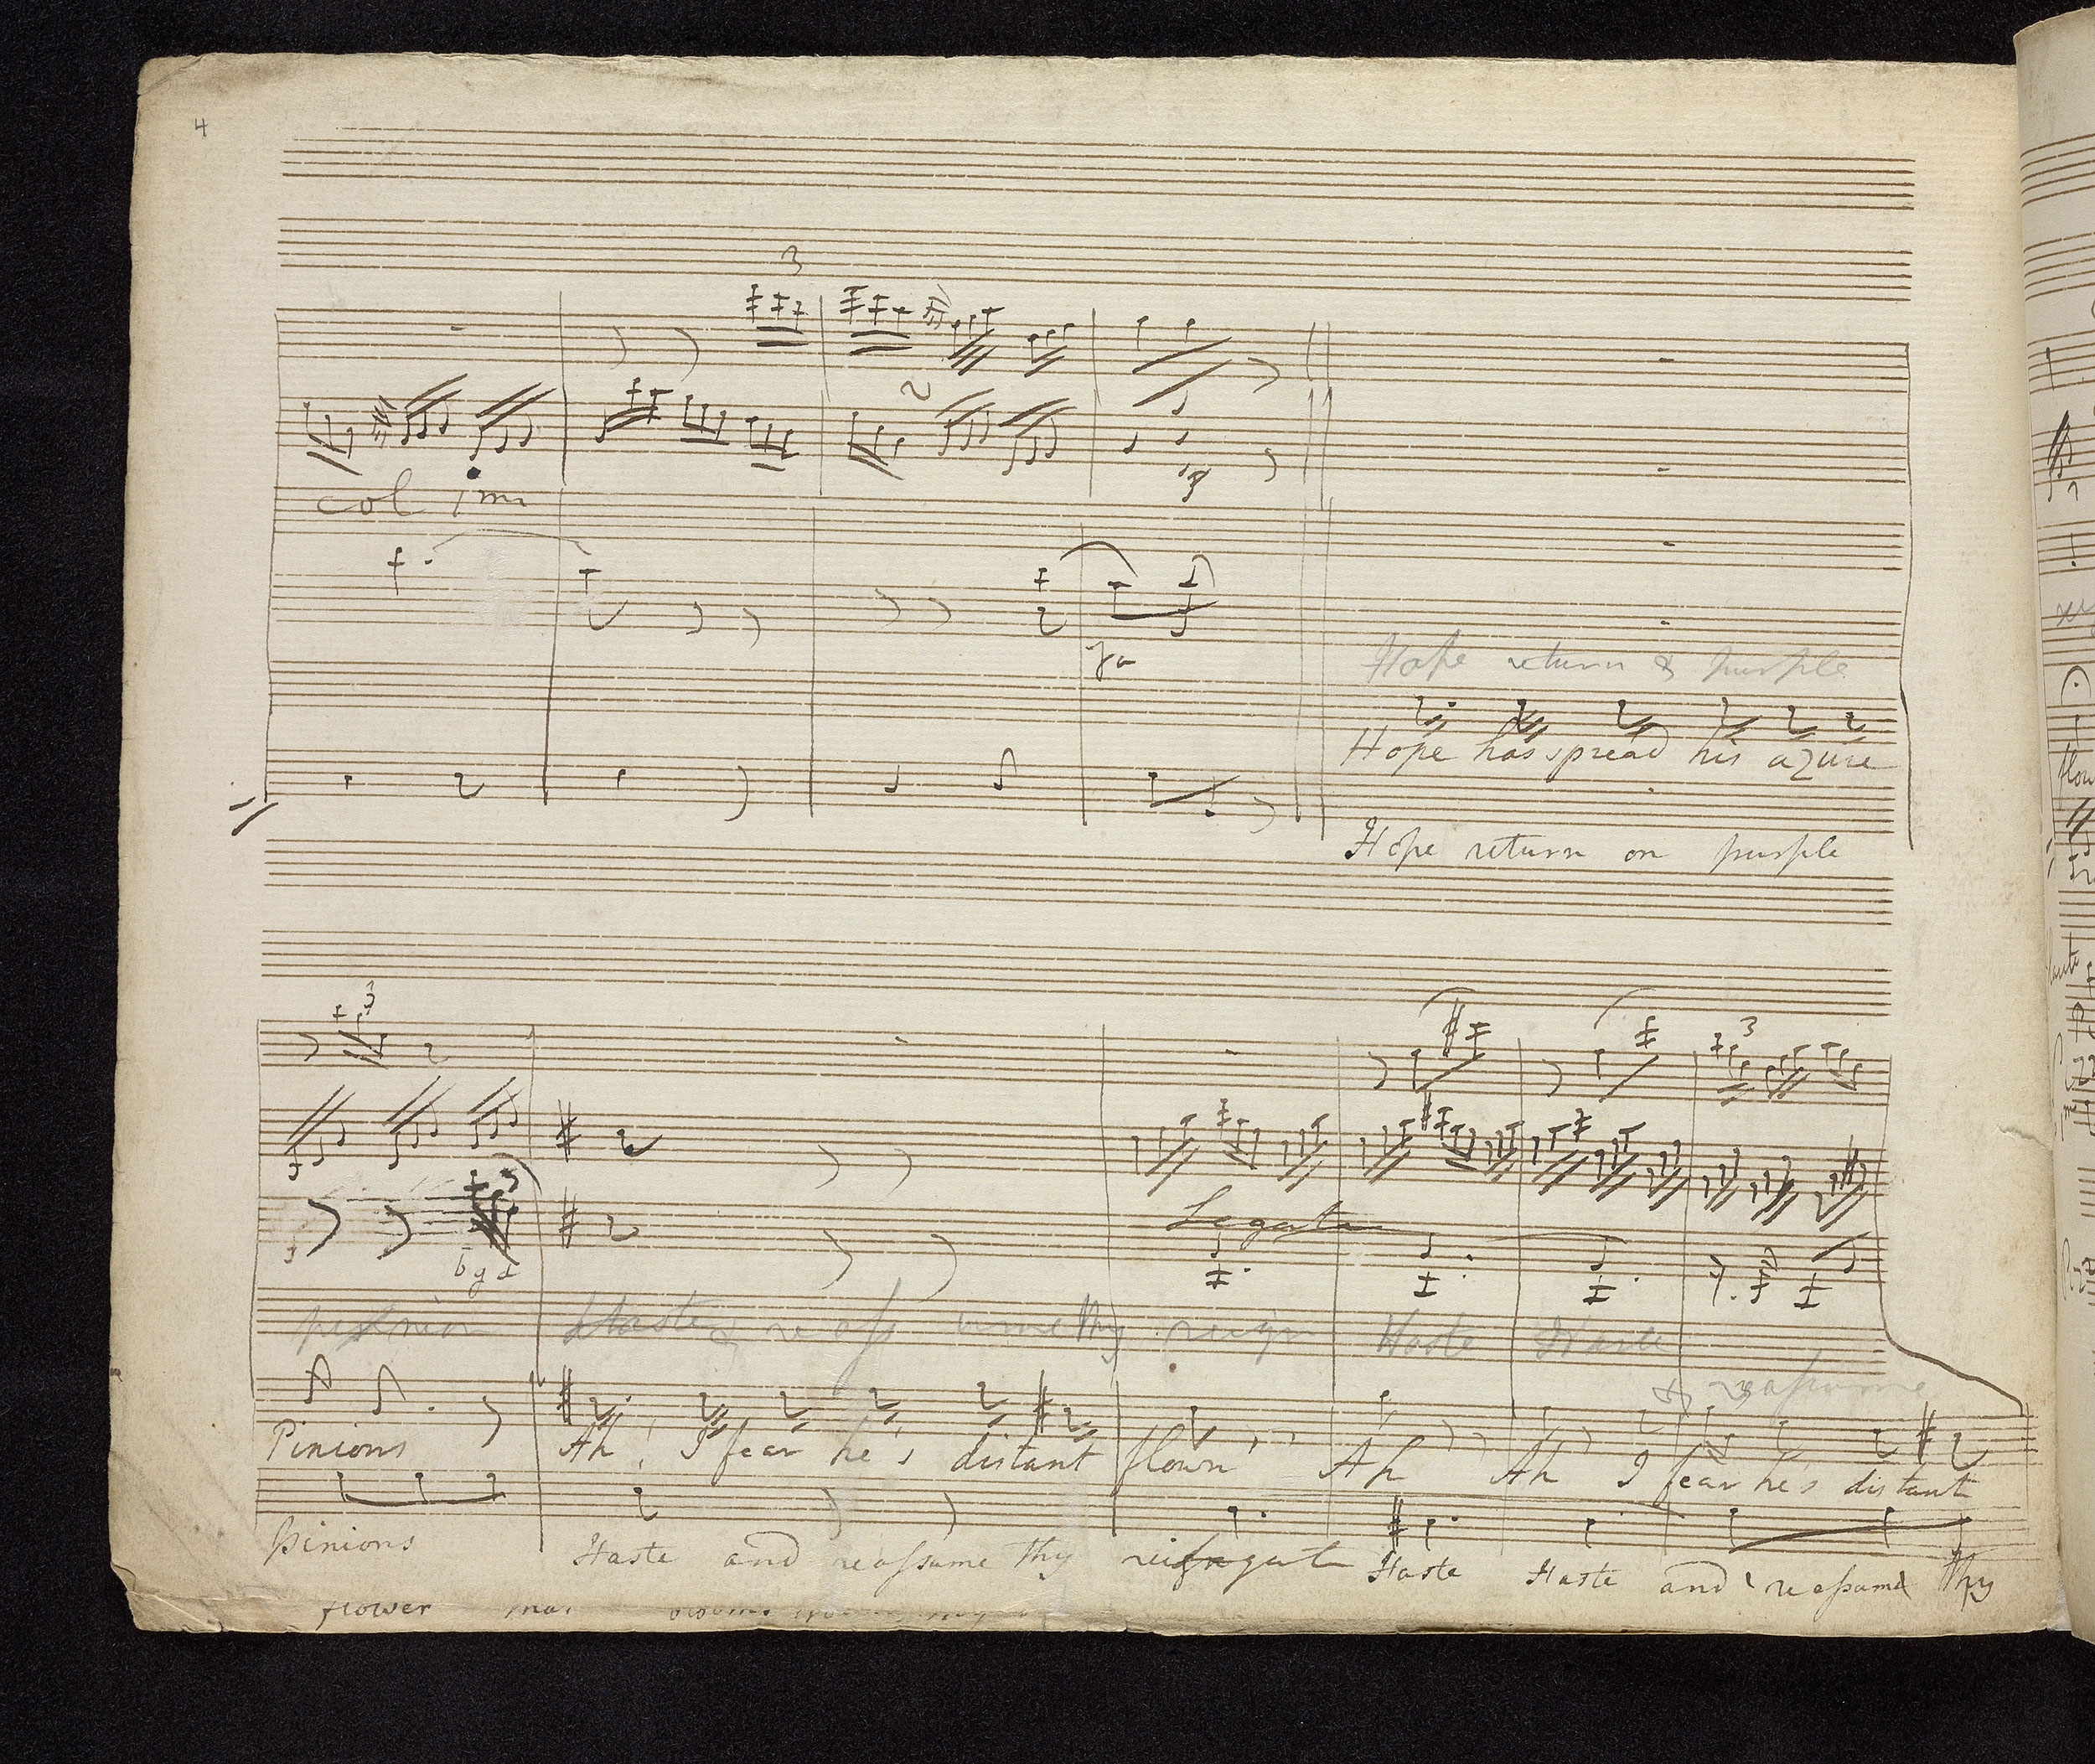 4
3
col 1mo
Hope return & purple
Hope has spread his azure
Hope return on purple
3
3
b g d
Legato
pinion Haste & reass ume thy reign Haste Haste
& reassume
Pinions Ah, I fear he's distant flown Ah Ah I fear he's distant
Pinions Haste and reassume Thy Haste Haste and reassume Thy
flower